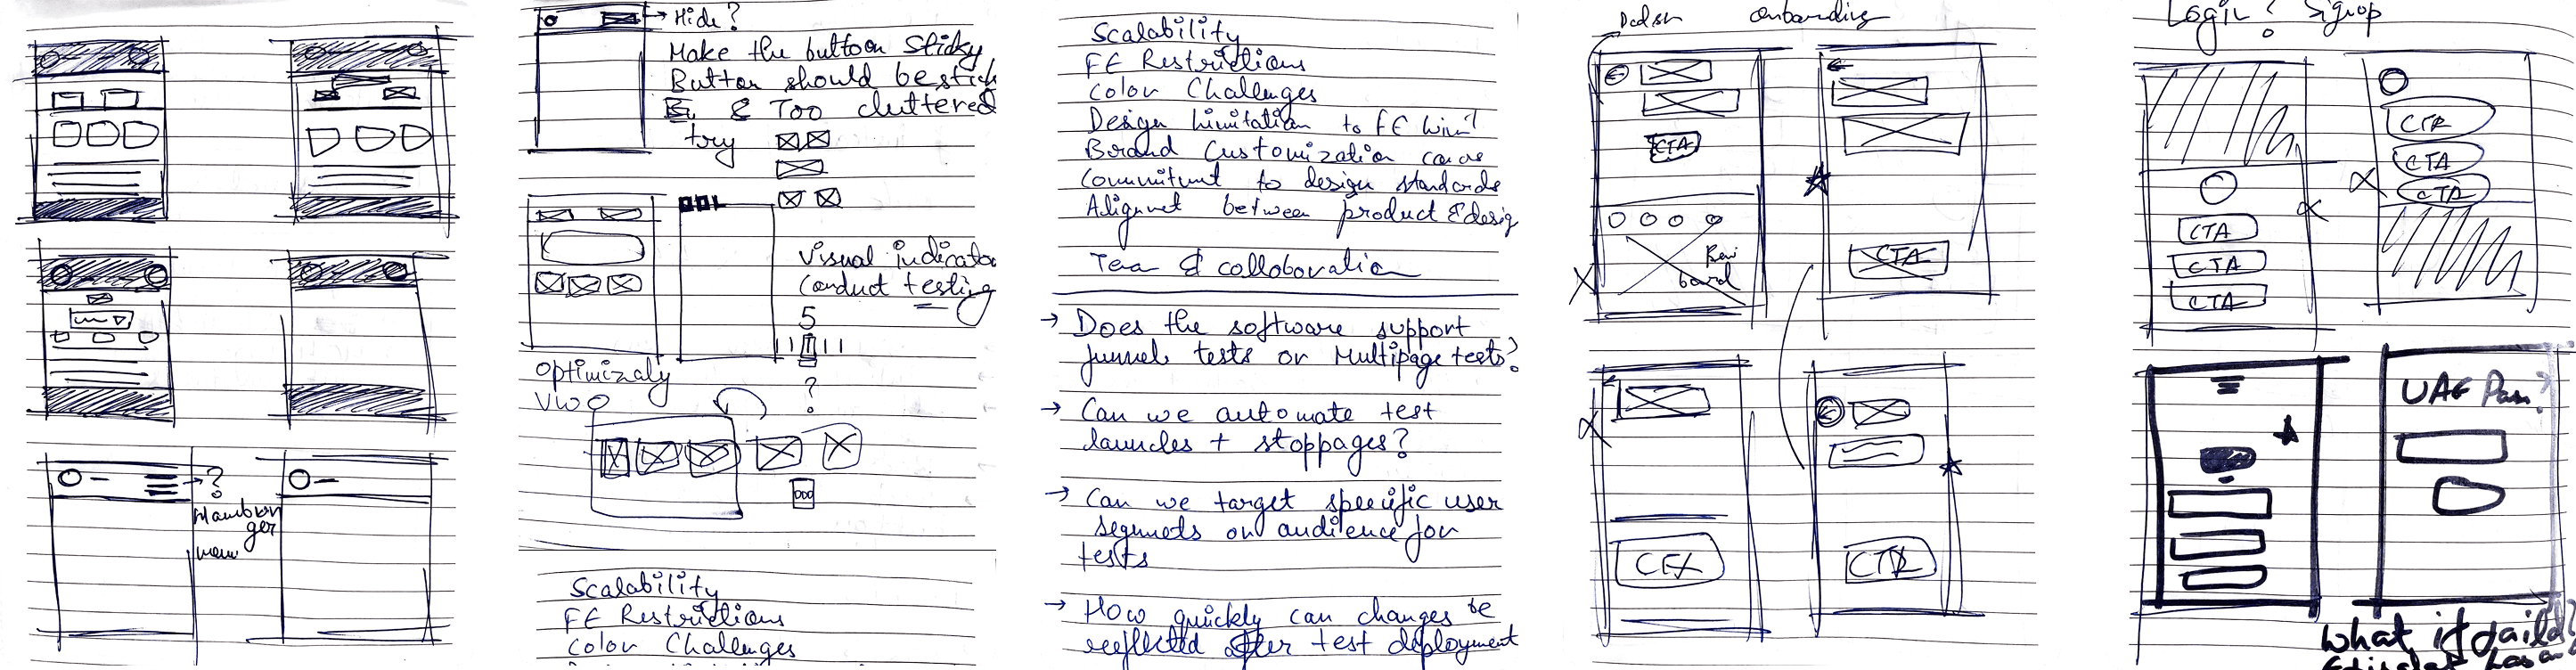 ?
menu
Hide?
Make the button sticky
Button should be stick
& Too cluttered
try
Visual indicato
Conduct testing
5
?
Optimizaly
VWO
Scalability
FE Restrictions
Color Challenges
Scalability
FE Restrictions
Color Challenges
Design limitation to FE limit
Brand Customization
Commitment to design standards
Alignet between product & desig
Team & collaboration
→ Does the software support
funnel tests or Multipage tests?
→ Can we automate test
launches + stoppages?
→ Can we target specific user
segmets or audience for
tests
→ How quickly can changes be
reeflected after test deployment
onboarding
CTA
board
CTA
CTA
CTA
Login? Signup
CTA
CTA
CTA
CTA
CTA
CTA
UAE Pass?
What if faild?